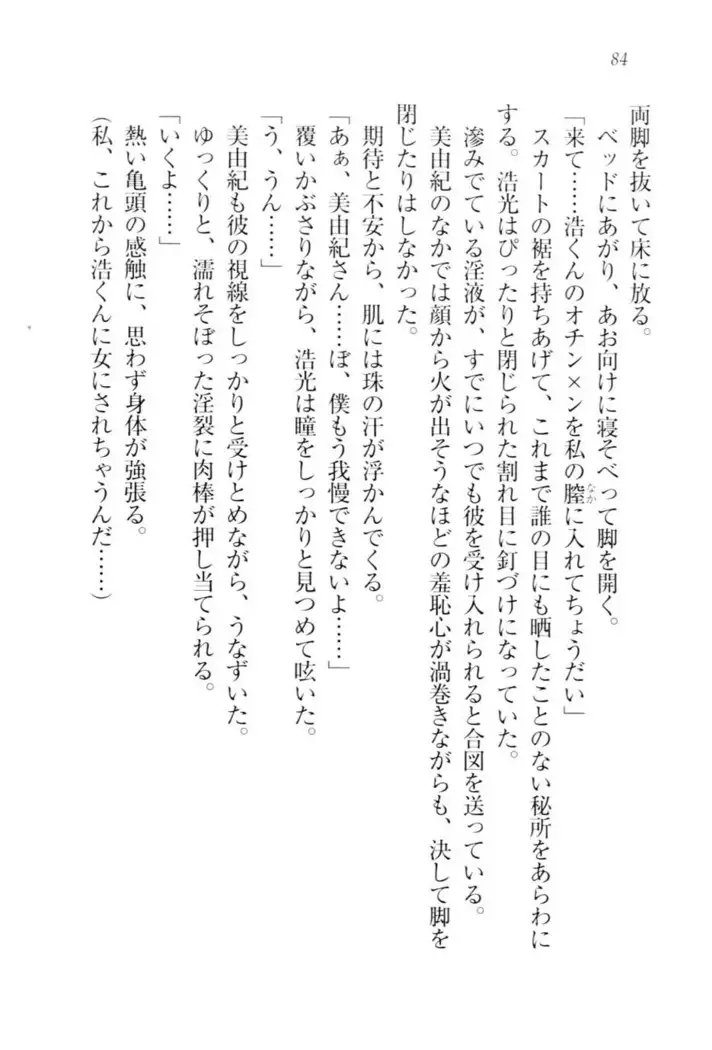 84
両脚を抜いて床に放る。
ベッドにあがり、あお向けに寝そべって脚を開く。
「来て……浩くんのオチン×ンを私の膣に入れてちょうだい」
なか
スカートの裾を持ちあげて、これまで誰の目にも晒したことのない秘所をあらわに
する。浩光はぴったりと閉じられた割れ目に釘づけになっていた。
滲みでている淫液が、すでにいつでも彼を受け入れられると合図を送っている。
美由紀のなかでは顔から火が出そうなほどの羞恥心が渦巻きながらも、決して脚を
閉じたりはしなかった。
期待と不安から、肌には珠の汗が浮かんでくる。
「あぁ、美由紀さん……ぼ、僕もう我慢できないよ……」
覆いかぶさりながら、浩光は瞳をしっかりと見つめて呟いた。
「う、うん……」
美由紀も彼の視線をしっかりと受けとめながら、うなずいた。
ゆっくりと、濡れそぼった淫裂に肉棒が押し当てられる。
「いくよ……」
熱い亀頭の感触に、思わず身体が強張る。
(私、これから浩くんに女にされちゃうんだ……)